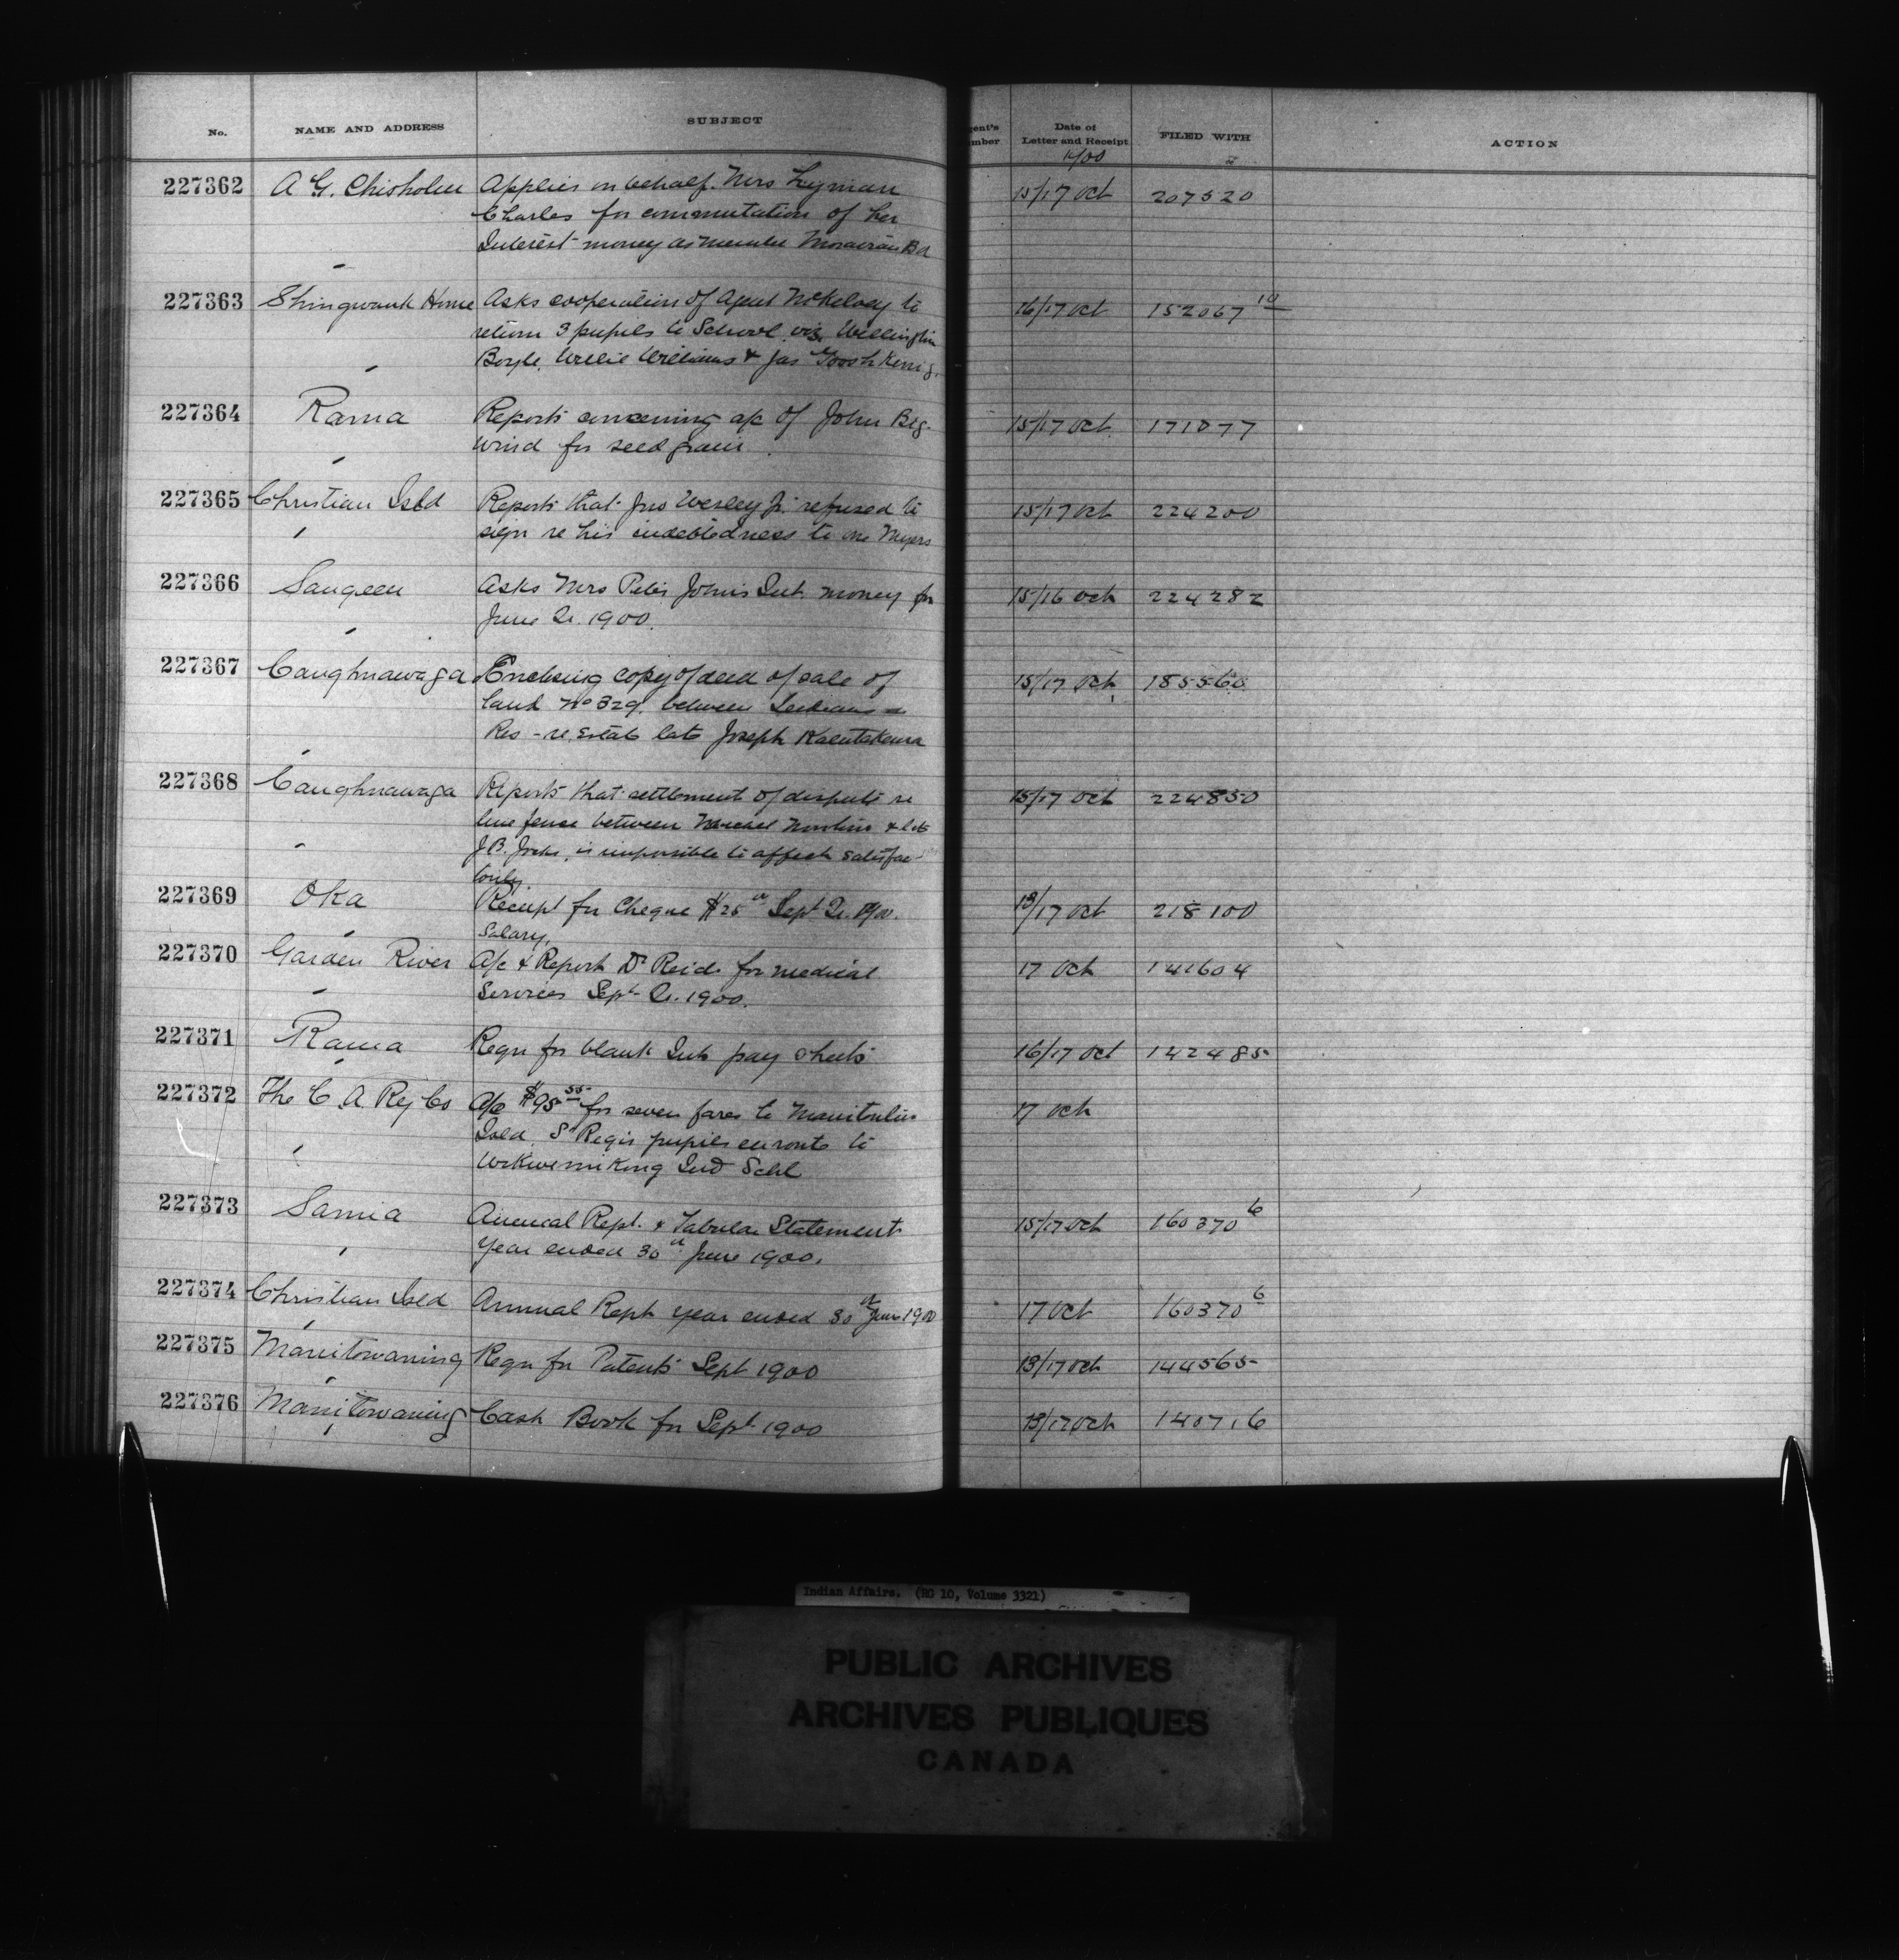 No. NAME AND ADDRESS SUBJECT gent's mber Date of Letter and Receipt FILED WITH ACTION
1900
227362 A G. Chisholm Applies on behalf. Mrs Lyman 15/17 Oct 207520
Charles for commutation of her
Interest money as member Moravian Bd
227363 Shingwauk Home Asks cooperation of Agent McKelvey to 16/17 Oct 152067 10
return 3 pupils to School. viz. Wellington
Boyle, Willie Williams & Jas
227364 Rama Reports concerning a/c of John Big- 15/17 Oct 171077
wind for seed grain.
227365 Christian Isld Reports that Jno Wesley Jr. refused to 15/17 Oct 224200
sign re his indebtedness to one Myers
227366 Saugeen Asks Mrs Peter John's Int. money for 15/16 Oct 224282
June Qr. 1900.
227367 Caughnawaga Enclosing copy of deed of sale of 15/17 Oct 185560
land No 329. between Indians
Res - re. Estate late Joseph
227368 Caughnawaga Reports that settlement of dispute re 15/17 Oct 224850
line fence between & late
J.B. Jocks, is impossible to affect satisfac-
torily.
227369 Oka Receipt for Cheque $25 Sept Qr. 1900. 13/17 Oct 218100
Salary.
227370 Garden River A/c & Report Dr Reid for medical 17 Oct 141604
Services Sept Qr. 1900.
227371 Rama Reqn for blank Int pay sheets 16/17 Oct 142485
227372 The C. A. Ry Co A/c $95 55 for seven fares to Manitoulin 17 Oct
Isld. St Regis pupils enroute to
Wikwemikong Ind Schl
227373 Sarnia Annual Rept. & Tabular Statement 15/17 Oct 160370 6
Year ended 30th June 1900.
227374 Christian Isld Annual Rept year ended 30th June 1900 17 Oct 160370 6
227375 Manitowaning Reqn for Patents Sept 1900 13/17 Oct 144565
227376 Manitowaning Cash Book for Sept 1900 13/17 Oct 140716
Indian Affairs. (RG 10, Volume 3321)
PUBLIC ARCHIVES
ARCHIVES PUBLIQUES
CANADA